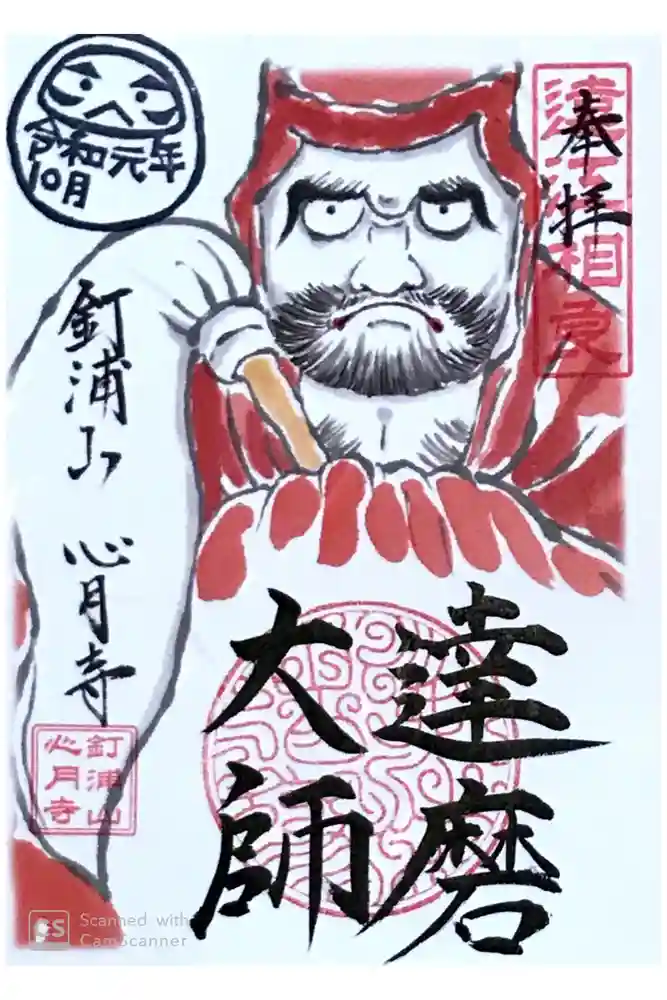 奉拝
遠江相良
達磨
大師
令和元年
10月
釘浦山 心月寺
釘浦山
心月寺
CS Scanned with
CamScanner